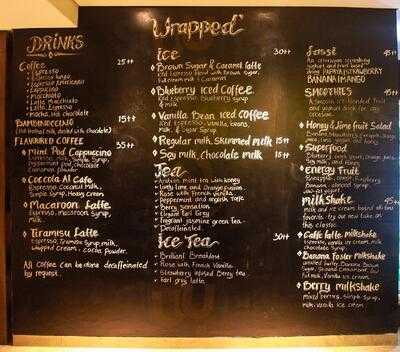 Wrapped
DRINKS
Coffee 25++
Espresso
Espresso lungo
Espresso Americano
Cappucino
Macchiato
Latte Macchiato
Latte Espresso
Mocha, Hot chocolate
BAMBINOCCINO 15++
(Hot frothed milk, dusted with chocolate)
FLAVOURED COFFEE 35++
Mint Pod Cappuccino
Espresso, milk, Simple Syrup,
Peppermint pod, chocolate
Cinnamon powder
Coccola Al Café
Espresso, coconut milk,
Simple Syrup, Heavy cream
Macaroon Latte
Espresso, macaroon Syrup,
milk.
Tiramisu Latte
Espresso, tiramisu Syrup, milk,
Whipped cream, cocoa powder.
All coffee can be done decaffeinated
by request.
ice 30++
Brown Sugar & Caramel Latte
Iced Espresso blend with brown sugar,
full cream milk & caramel
Blueberry Iced Coffee
Iced Espresso, Blueberry syrup
& milk
Vanilla Bean Iced Coffee
Iced Espresso, vanilla, beans,
milk, & Sugar Syrup
Regular milk, Skimmed milk 15++
Soy milk, Chocolate milk
Tea 15++
Arabian mint tea with honey
Lively lime and Orange
Rose with French Vanilla
Peppermint and english toffe
Berry Sensation
Elegant Earl Grey
Fragrant jasmine green tea
Decaffeinated.
Ice Tea 30++
Brilliant Breakfast
Rose with French Vanilla
Strawberry infused Berry Tea
Earl grey latte.
45++
yoghurt and fruit based
drink PAPAYA STRAWBERRY
BANANA MANGO
SMOOTHIES 45++
A Smooth and blended fruit
and yoghurt drink for any
occasion.
Honey & lime fruit Salad
Superfood
Blueberry
Soy milk, and honey
energy fruit
Pineapple,
Banana, almond syrup
milkShake 45++
milk and ice cream based all time
favorite. try our new take on
this classic
Caffe latte milkshake
Espresso, vanilla ice cream, milk
chocolate Syrup
Banana Foster Milkshake
unsalted butter, Banana, Brown
Sugar, Ground Cinnamon, low
fat milk, Vanilla ice cream.
Berry milkshake
mixed berries, Simple Syrup,
milk, vanilla ice cream.